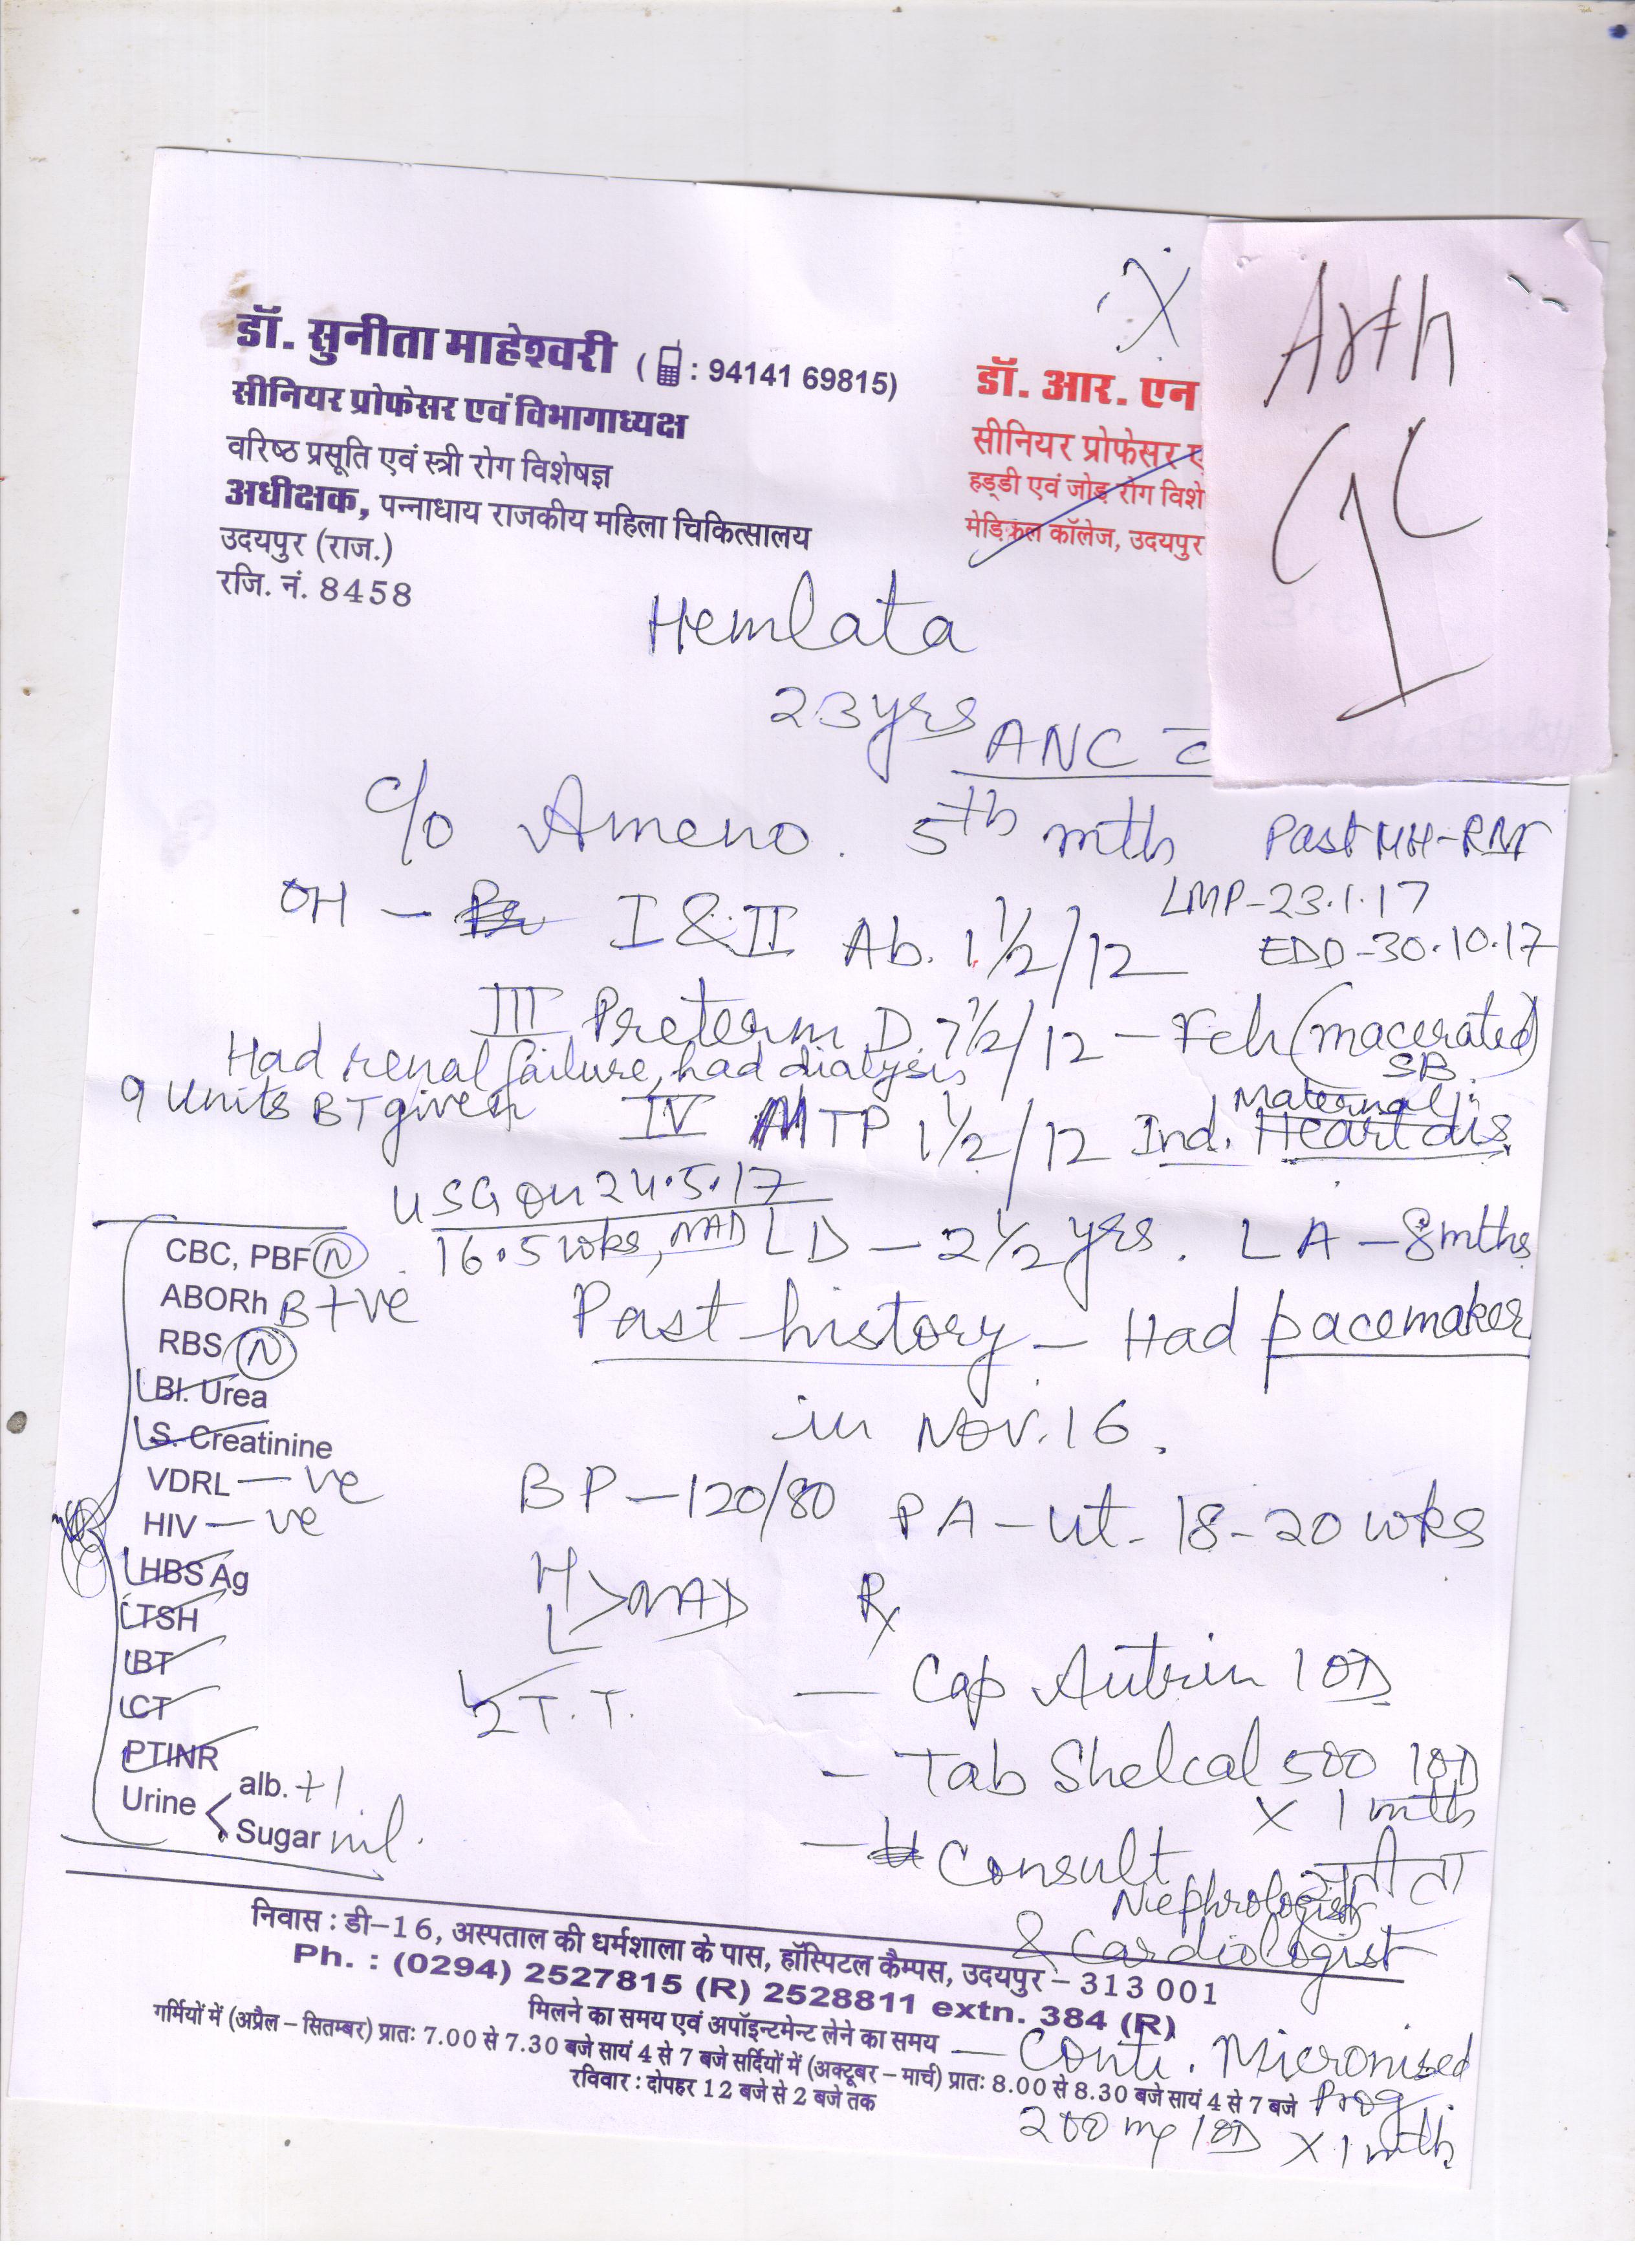 डॉ. सुनीता माहेश्वरी ( : 94141 69815)
सीनियर प्रोफेसर एवं विभागाध्यक्ष
वरिष्ठ प्रसूति एवं स्त्री रोग विशेषज्ञ
अधीक्षक, पन्नाधाय राजकीय महिला चिकित्सालय
उदयपुर (राज.)
रजि. नं. 8458
डॉ. आर. एन
सीनियर प्रोफेसर ए
हड्डी एवं जोड़ रोग विशे
मेडिकल कॉलेज, उदयपुर
Arth
Hemlata
23yrs
ANC c̄
c/o Ameno. 5th mth
Past MH-RM
LMP-23.1.17
EDD-30.10.17
OH - I & II Ab. 1 1/2/12
III Preterm D. 7 1/2/12 - Fch (macerated)
SB.
Had renal failure, had dialysis
9 units BT given
IV MTP 1 1/2/12 Ind. Maternal
Heart dis.
USG on 24.5.17
16.5 wks, NAD
LD - 2 1/2 yrs. LA - 8mths
Past history - Had pacemaker
in Nov. 16.
CBC, PBF N
ABORh B+ve
RBS N
Bl. Urea
S. Creatinine
VDRL - ve
HIV - ve
HBS Ag
TSH
BT
CT
PTINR
Urine alb. +1
Sugar nil.
BP - 120/80 PA - ut. 18-20 wks
H
L > NAD
2 T.T.
Rx
- Cap Autrin 1 OD
- Tab Shelcal 500 1 OD
x 1 mth
- Consult
Nephrologist
& Cardiologist
सुनीता
निवास : डी-16, अस्पताल की धर्मशाला के पास, हॉस्पिटल कैम्पस, उदयपुर - 313 001
Ph. : (0294) 2527815 (R) 2528811 extn. 384 (R)
मिलने का समय एवं अपॉइन्टमेन्ट लेने का समय
गर्मियों में (अप्रैल - सितम्बर) प्रातः 7.00 से 7.30 बजे सायं 4 से 7 बजे सर्दियों में (अक्टूबर - मार्च) प्रातः 8.00 से 8.30 बजे सायं 4 से 7 बजे
रविवार : दोपहर 12 बजे से 2 बजे तक
- Conti. Micronised
Prog.
200 mg 1 OD x 1 mth.